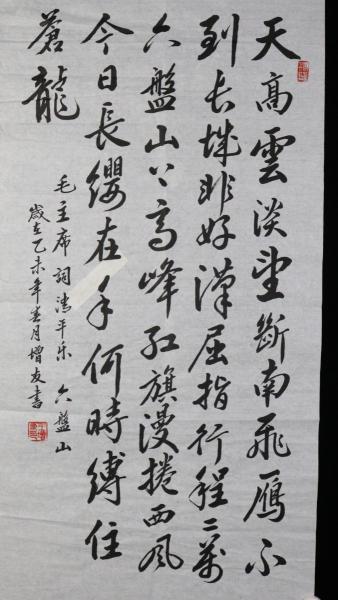 天高雲淡望斷南飛雁不
到長城非好漢屈指行程二萬
六盤山上高峰紅旗漫捲西風
今日長纓在手何時縛住
蒼龍
毛主席詞清平乐六盤山
歲在乙未年春月增友書